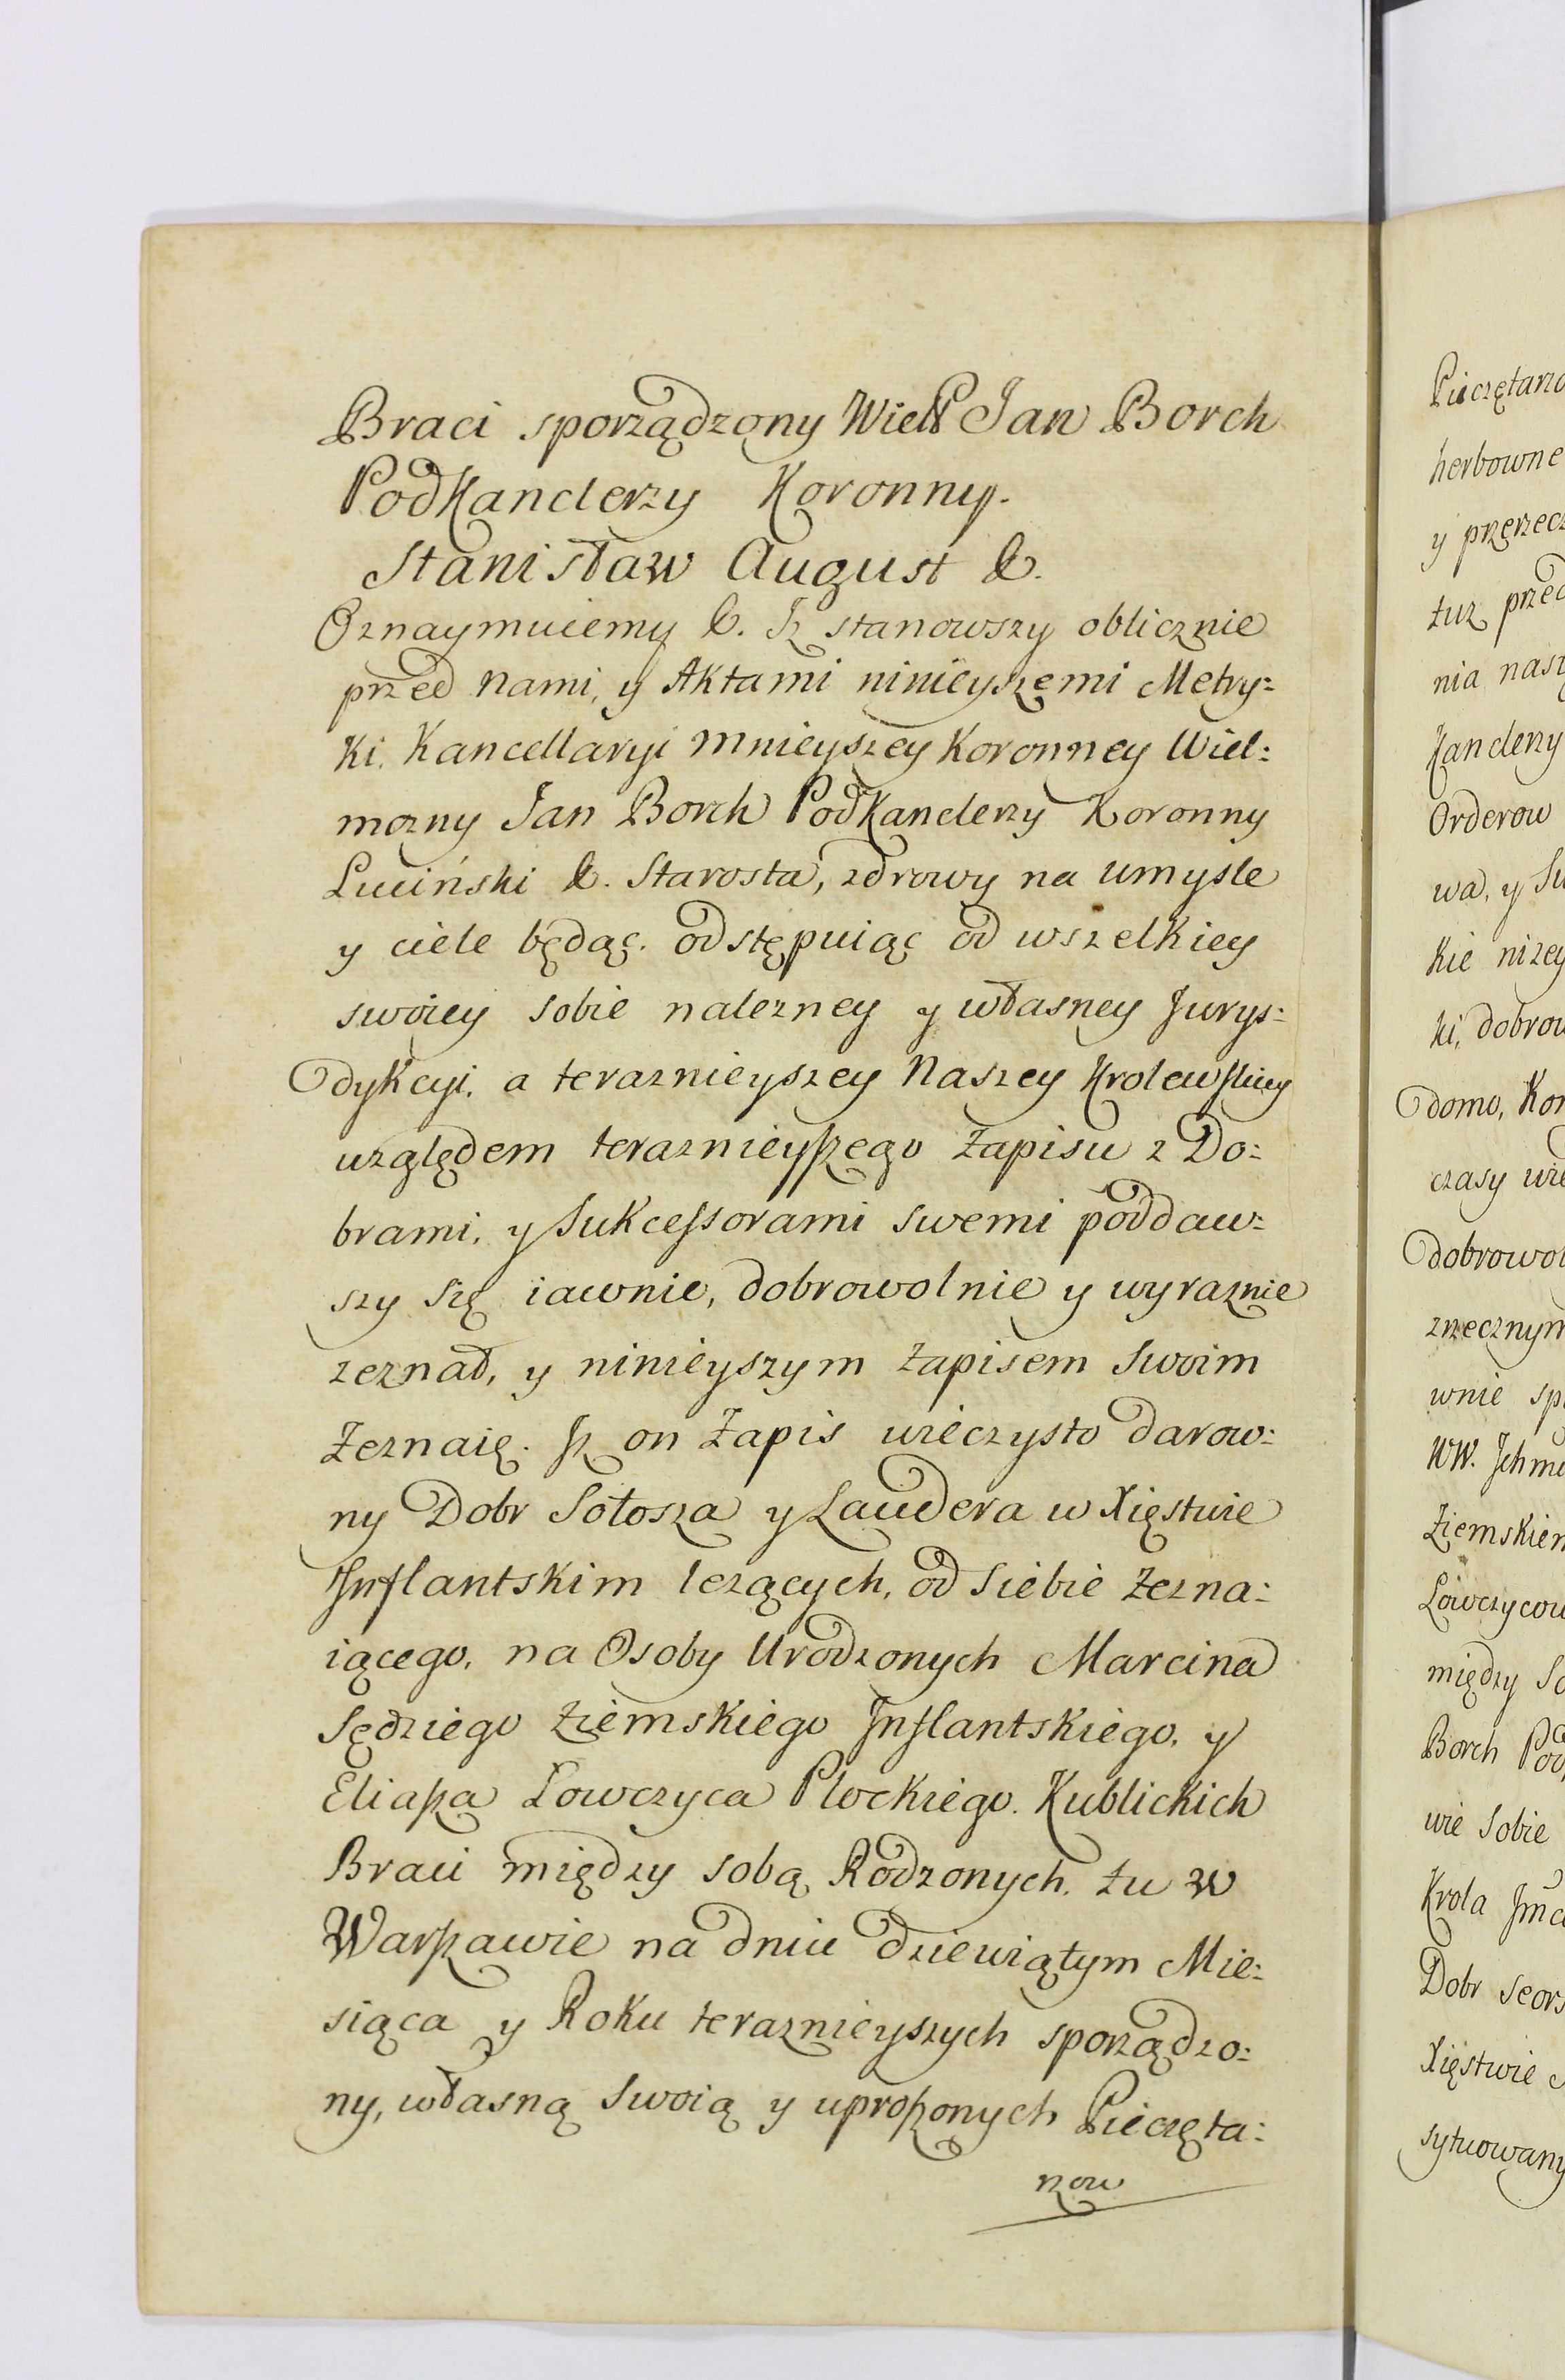 Braci sporządzony Wiel Jan Borch
Podkanclerzy Koronny.
Stanisław August &.
Oznaymuiemy &. Jż stanowszy oblicznie
przed nami, y Aktami ninieyszemi Metry:
ki. Kancellaryi mnieyszey Koronney Wiel:
mozny Jan Borch Podkanclerzy Koronny
Luciński &. Starosta, zdrowy na umysle
y ciele będąc. odstępuiąc od wszelkiey
swoiey sobie nalezney y własney Jurys:
dykcyi. a teraznieyszey Naszey Krolewskiey
względem teraznieyszego zapisu z Do:
brami, y Sukcessorami swemi poddaw:
szy się iawnie, dobrowolnie y wyraznie
zeznał, y ninieyszym zapisem swoim
Zeznaię. Jż on Zapis wieczysto darow:
ny Dobr Sołosza y Laudera w Xięstwie
Jnflantskim lezących, od Siebie Zezna:
iącego, na Osoby Urodzonych Marcina
Sędziego Ziemskiego Jnflantskiego, y
Eliasza Łowczyca Płockiego. Kublickich
Braci między sobą Rodzonych. tu w
Warszawie na dniu dziewiątym Mie:
siąca y Roku teraznieyszych sporządzo:
ny, własną swoią y uproszonych Pieczęta:
rzow
Pieczętarzo
herbowne
y przerzecz
tuz przed
nia nasz
Kanclerzy
Orderow
wa, y Su
kie nizey
ki, dobrow
domo, Kon
czasy wie
dobrowol
zrzecznym
wnie sp
WW. Jchm
Ziemskiem
Łowczycow
między So
Borch Pod
wie Sobie
Krola Jmc
Dobr seors
Xięstwie
sytuowany